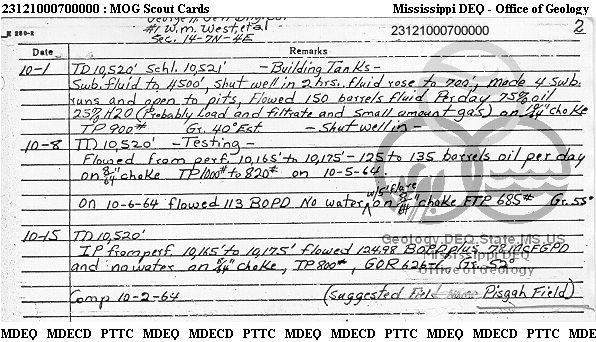 23121000700000 : MOG Scout Cards Mississippi DEQ - Office of Geology
#1 W.m. West, etal 23121000700000 2
Sec. 14-7N-4E
Date Remarks
10-1 TD 10,520' Schl. 10,521' -Building Tanks-
Swb. fluid to 4500', shut well in 2 hrs. fluid rose to 700', made 4 swb.
runs and open to pits, Flowed 150 barrels fluid Per day 75% oil
25% H2O (Probably Load and filtrate and small amount gas) on choke
TP 900# Gr. 40° Est - Shut well in -
10-8 TD 10,520' - Testing -
Flowed from perf. 10,165' to 10,175' - 125 to 135 barrels oil per day
on 8/64" choke TP 1000# to 820# on 10-5-64
w/5' flare
on 10-6-64 flowed 113 BOPD No water, on 8/64" choke FTP 685# Gr. 55°
10-15 TD 10,520'
Geology.DEQ.State.MS.US
IP from perf. 10,165' to 10,175' flowed 124.98 BOPD plus GPD
and no water on 8/64" choke, TP 800#, GOR 626-/ Gr. 52°
Mississippi DEQ
Office of Geology
Comp 10-2-64 (Suggested Field Name Pisgah Field)
MDEQ MDECD PTTC MDEQ MDECD PTTC MDEQ MDECD PTTC MDEQ MDECD PTTC MDE